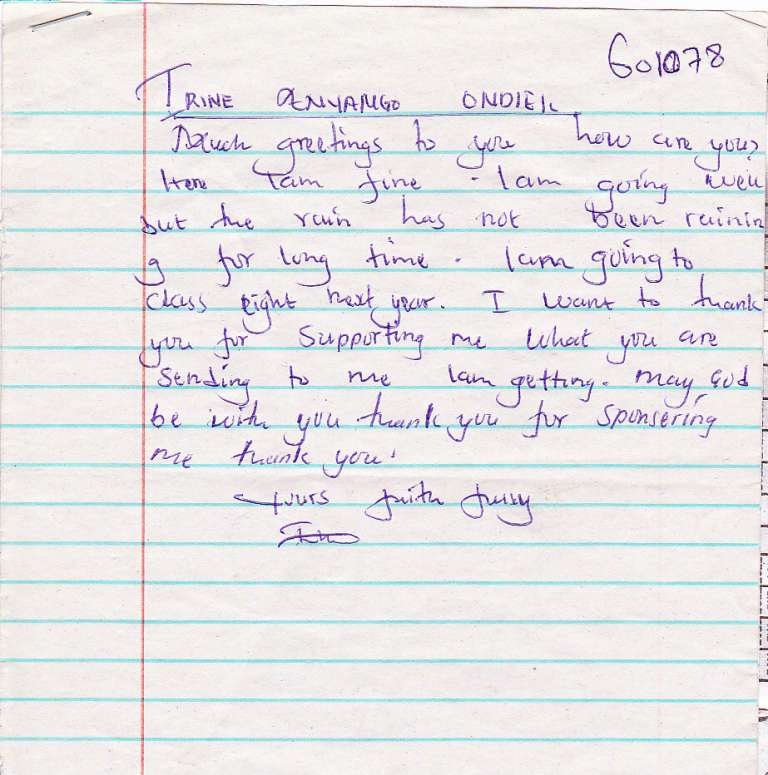 601078
TRINE ANYANGO ONDIEK
Much greetings to you how are you?
Here Iam fine . Iam going well
but the rain has not been rainin
g for long time . Iam going to
class eight next year. I want to thank
you for supporting me what you are
sending to me Iam getting. may God
be with you thank you for sponsering
me thank you.
yours faith fully